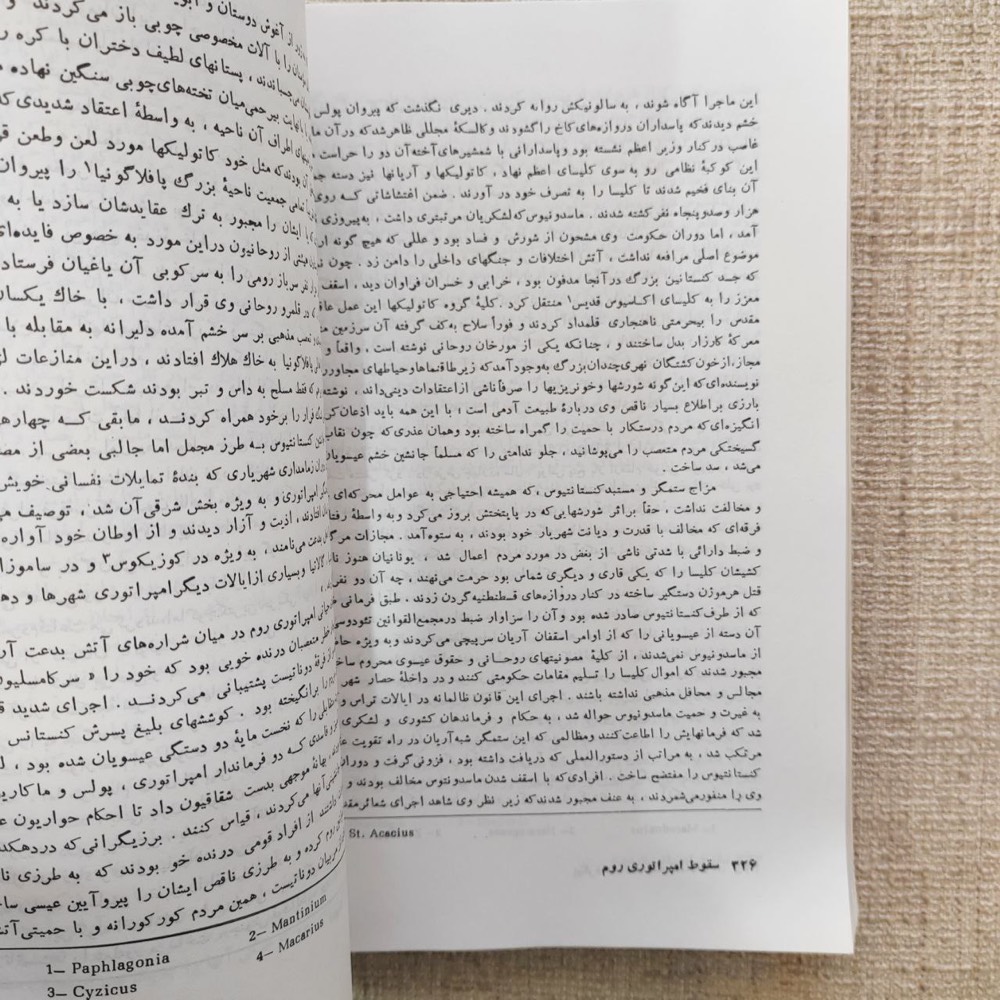 این ماجرا آگاه شوند ، به سالونیکش روانه کردند . دیری نگذشت که پیروان پولس
خشم دیدندکه پاسداران دروازه‌های کاخ راگشودند وکالسکهٔ مجللی ظاهرشدکه درآن
غاصب درکنار وزیر اعظم نشسته بود وپاسدارانی با شمشیرهای‌آخته‌آن دو را حراست
این کوکبهٔ نظامی رو به سوی کلیسای اعظم نهاد ، کاتولیکها و آریانها نیز دسته
آن بنای فخیم شدند تا کلیسا را به تصرف خود در آورند . ضمن اغتشاشاتی کـه روی
هزار وصدوپنجاه نفرکشته شدند . ماسدونیوس‌که‌لشکریان مرتبتری داشت ، به‌پیروزی
آمد ، اما دوران حکومت وی مشحون از شورش و فساد بود و عللی که هیچ گونه
موضوع اصلی مرافعه نداشت ، آتش اختلافات و جنگهای داخلی را دامن زد . چون
که جسد کنستانتین بزرگ درآنجا مدفون بود ، خرابی و خسران فراوان دید ، اسقف
معزز را به کلیسای اکـاسیوس قدیس۱ منتقل کرد .کلیهٔ گروه کاتولیکها این عمل
مقدس را بیحرمتی ناهنجاری قلمداد کردند و فوراً سلاح به‌کف گرفته آن سرزمین
معرکهٔ کارزار بدل ساختند ، چنانکه یکی از مورخان روحانی نوشته است ، واقعاً و
مجاز،ازخون‌کشتگان نهری‌چندان‌بزرگ به‌وجودآمدکه زیرطاقنماها وحیاطهای مجاورر
نویسنده‌ای‌که این‌گونه شورشها وخونریزیها را صرفاً ناشی ازاعتقادات دینی‌داند ، نوشته
بارزی براطلاع بسیار ناقص وی دربارهٔ طبیعت آدمی است ؛ با این همه باید اذعان
انگیزه‌ای‌که مردم درستکار با حمیت را گمراه ساخته بود وهمان عذری‌که چون نقاب
گسیختگی مردم متعصب را می‌پوشانید ، جلو ندامتی را که مسلماً جانشین خشم عیسویان
می‌شد ، سد ساخت .
مزاج ستمگر و مستبدکنستانتیوس ،که همیشه احتیاجی به عوامل محرکه‌ای
و مخالفت نداشت ، حقاً براثر شورشهایی‌که در پایتختش بروز می‌کرد وبه واسطهٔ
فرقه‌ای که مخالف با قدرت و دیانت شهریار خود بودند ، به ستوه‌آمد . مجازات
و ضبط دارائی با شدتی ناشی از بغض در مورد مردم اعمال شد ، یونانیان هنوز
کشیشان کلیسا را که یکی قاری و دیگری شماس بود حرمت می‌نهند ، چه آن دو
قتل هرموژن دستگیر ساخته در کنار دروازه‌های قسطنطنیه‌گردن زدند . طبق فرمانی
که از طرف‌کنستانتیوس صادر شده بود وآن را سزاوار ضبط درمجمع‌القوانین تئودوسی
آن دسته از عیسویانی را که از اوامر اسقفان آریان سرپیچی می‌کردند و به ویژه
از ماسدونیوس نمی‌شدند ، از کلیهٔ مصونیتهای روحـانی و حقوق عیسوی محروم ساخت
مجبور شدند که اموال کلیسا را تسلیم مقامات حکومتی کنند و در داخلهٔ حصار شهر
مجالس و محافل مذهبی نداشته باشند . اجرای این قانون ظالمانه در ایالات تراس و
به غیرت و حمیت ماسدونیوس حواله شد ، به حکام و فرماندهان کشوری و لشکری
شد که فرمانهایش را اطاعت‌کنند ومظالمی که این ستمگر شبه‌آریان در راه تقویت
مرتکب شد ، به مراتب از دستورالعملی که دریافت داشته بود ، فزونی‌گرفت و دوران
کنستانتیوس را مفتضح ساخت . افرادی‌که با اسقف شدن ماسدونیوس مخالف بودند و
وی را منفورمی‌شمردند ، به عنف مجبور شدندکه زیر نظر وی شاهد اجرای شعائر
St. Acacius
۳۲۶ سقوط امپراتوری روم
از آغوش دوستان و
را با آلات مخصوصی چوبی باز می‌کردند و
، پستانهای لطیف دختران با کره
بیرحمی‌میان تخته‌های‌چوبی سنگین نهاده
اطراف آن ناحیه ، به واسطهٔ اعتقاد شدیدی
بودندکه مثل خود کاتولیکها مورد لعن وطعن
جمعیت ناحیهٔ بزرگ پافلاگونیا۱ را پیروان
ایشان را مجبور به ترك عقایدشان سازد یا به
از روحانیون دراین مورد به خصوص فایده‌ای
سرباز رومی را به سرکوبی آن یاغیان فرستاد
در قلمرو روحانی وی قرار داشت ، با خاك یکسان
مذهبی بر سر خشم آمده دلیرانه به مقابله با
به خاك هلاك افتادند ، دراین منازعات
که فقط مسلح به داس و تبر بودند شکست خوردند .
فرار را برخود همراه کردنـد ، مابقی کـه
کنستانتیوس بـه طرز مجمل اما جالبی بعضی از
زمامداری شهریاری که بندهٔ تمایلات نفسانی خویش
امپراتوری و به ویژه بخش شرقی‌آن شد ، توصیف
افتادند ، اذیت و آزار دیدند و از اوطان خود آواره
بدعت می‌نامند ، به ویژه در کوزیکوس۳ و در
وبسیاری ازایالات دیگرامپراتوری شهرها و
امپراتوری روم در میان شراره‌های آتش بدعت
متعصبان درنده خویی بود که خود را «
فرقهٔ دوناتیست پشتیبانی می‌کردنـد . اجرای شدید
را برانگیخته بود . کوششهای بلیغ پسرش کنستانس
را که نخست مایهٔ دو دستگی عیسویان شده بود ،
کـه دو فرماندار امپراتوری ، پولس و
بهانهٔ موجهی بدست شقاقیون داد تا احکام حواریون
آنها می‌کردند ، قیاس کنند . برزیگرانی‌که
از افراد قومی درنده خو بودند که به طرزی
روم کرده و به طرزی ناقص ایشان را پیروآیین عیسی
دوناتیست ، همین مردم کورکورانه و با حمیتی
1— Paphlagonia
2— Mantinium
3— Cyzicus
4— Macarius